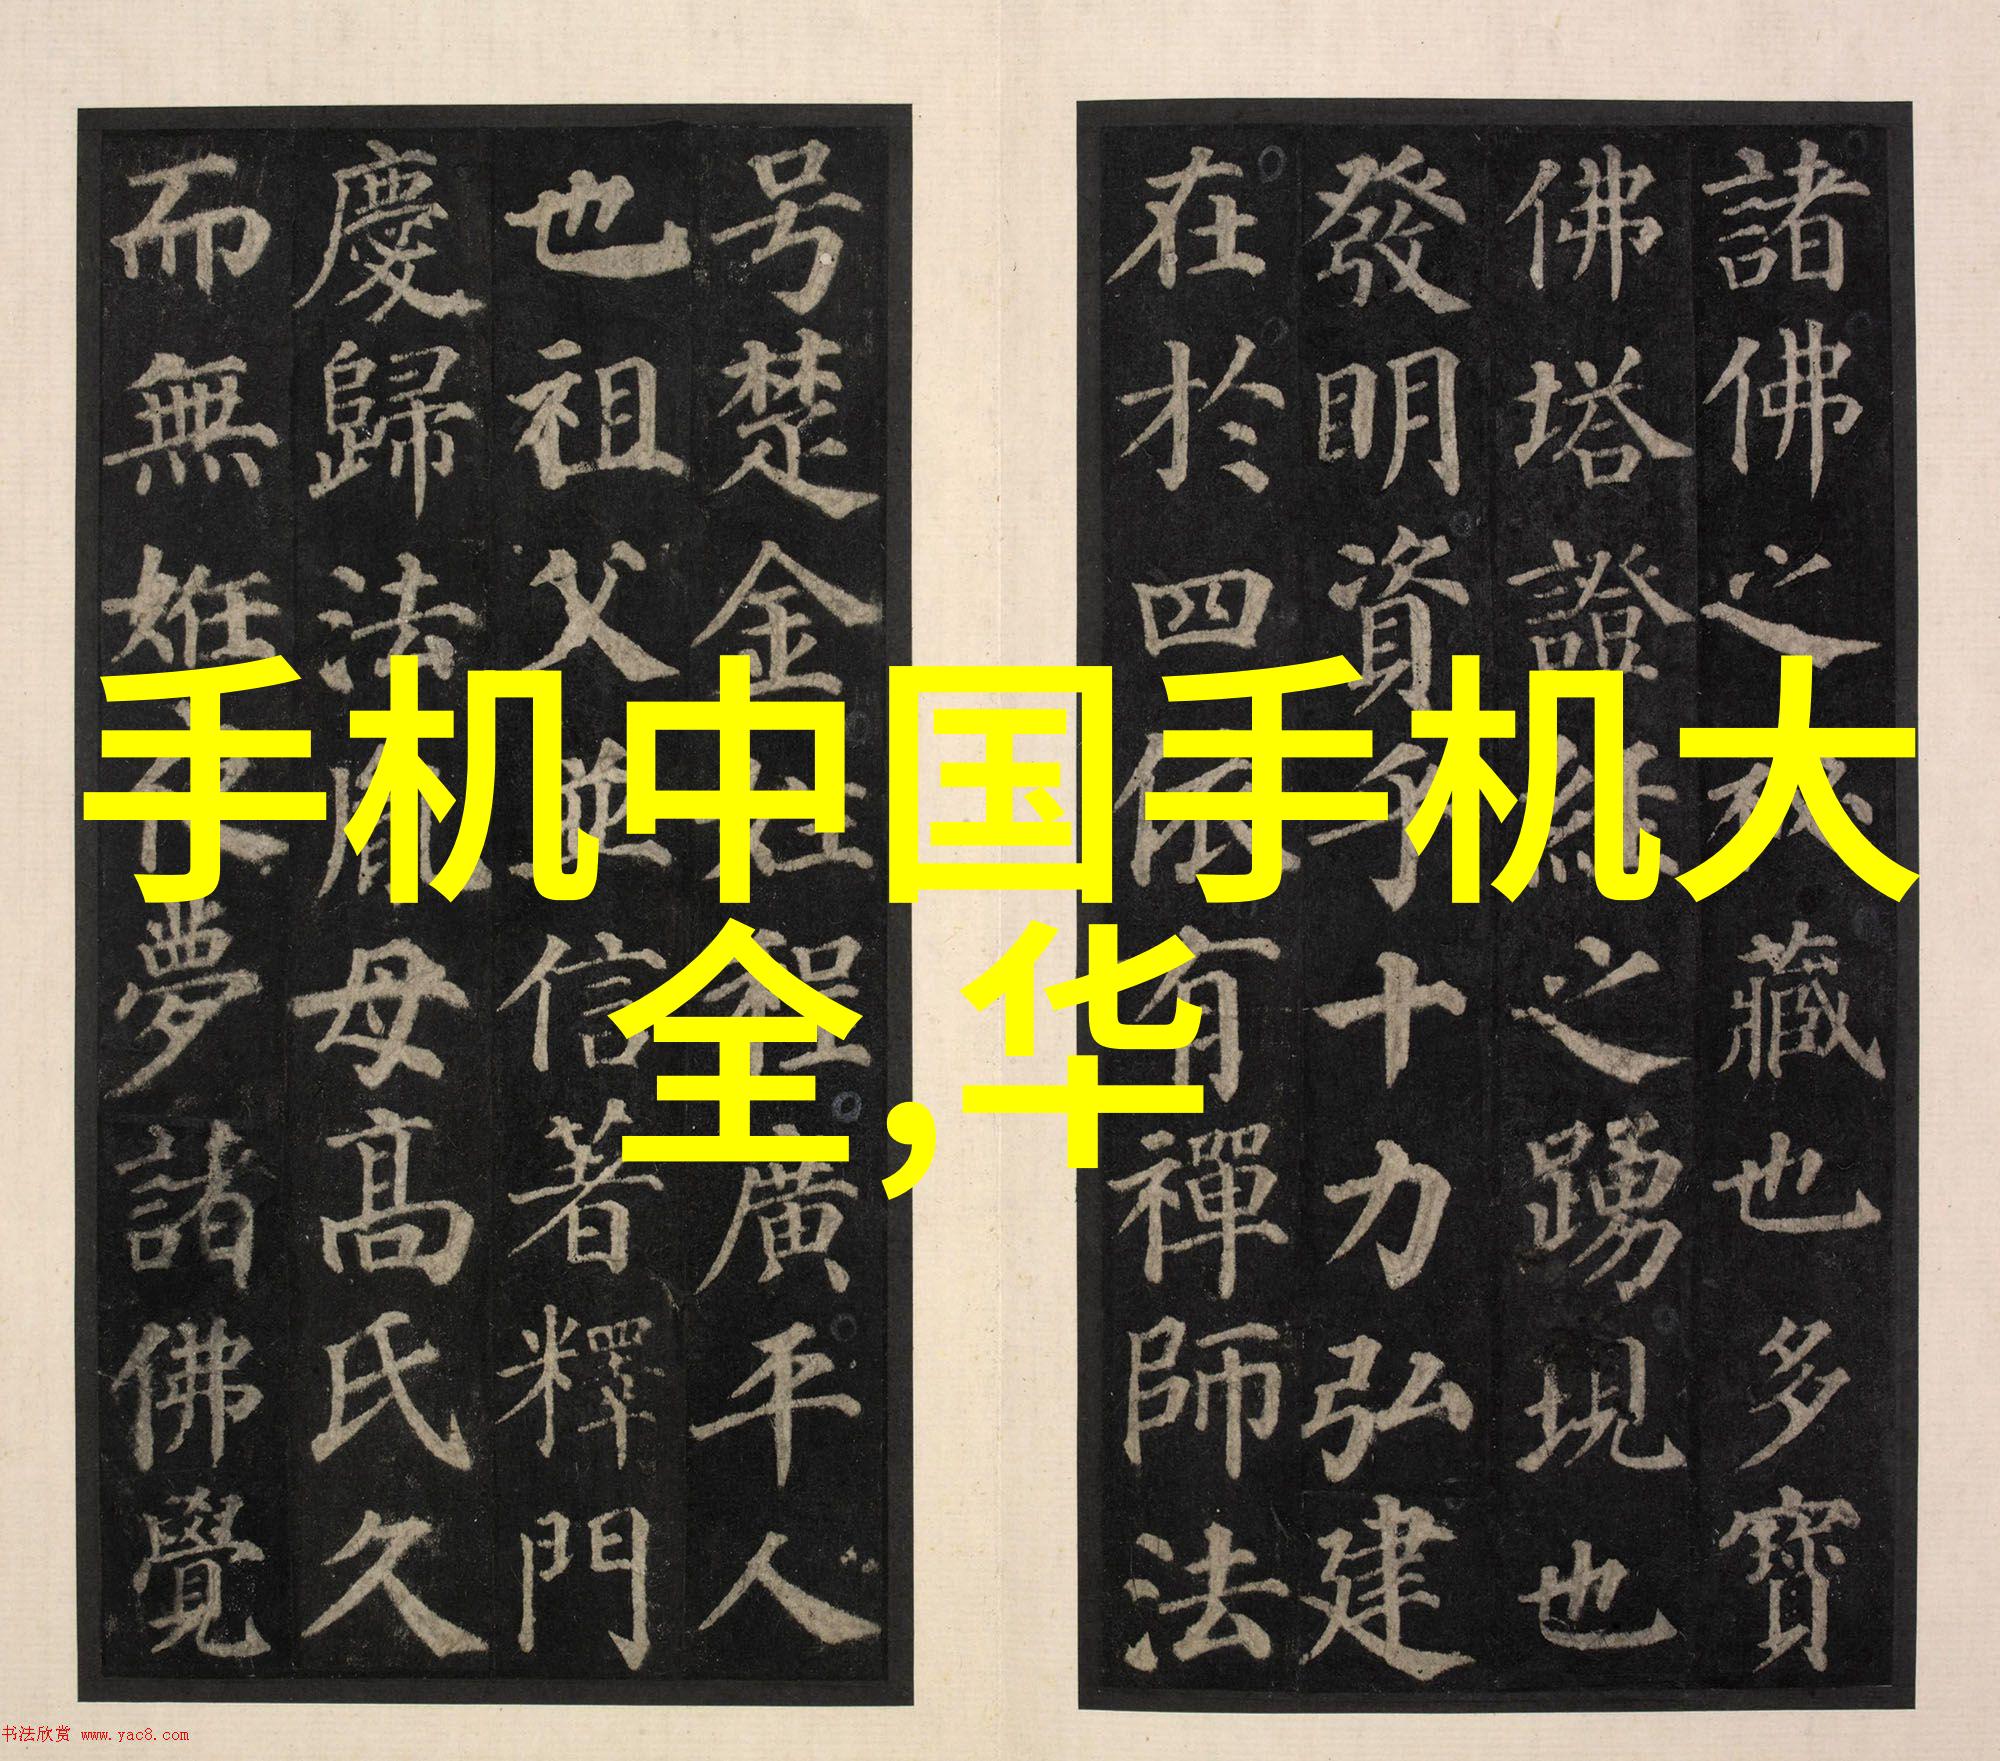 諸佛之秘藏也多寶
佛塔證經之踴現也
發明資乎十力弘建
在於四依有禪師法
号楚金姓程廣平人
也祖父並信著釋門
慶歸法胤母高氏久
而無姙夜夢諸佛覺
手机中国手机大
全,华
书法欣赏 www.yac8.com